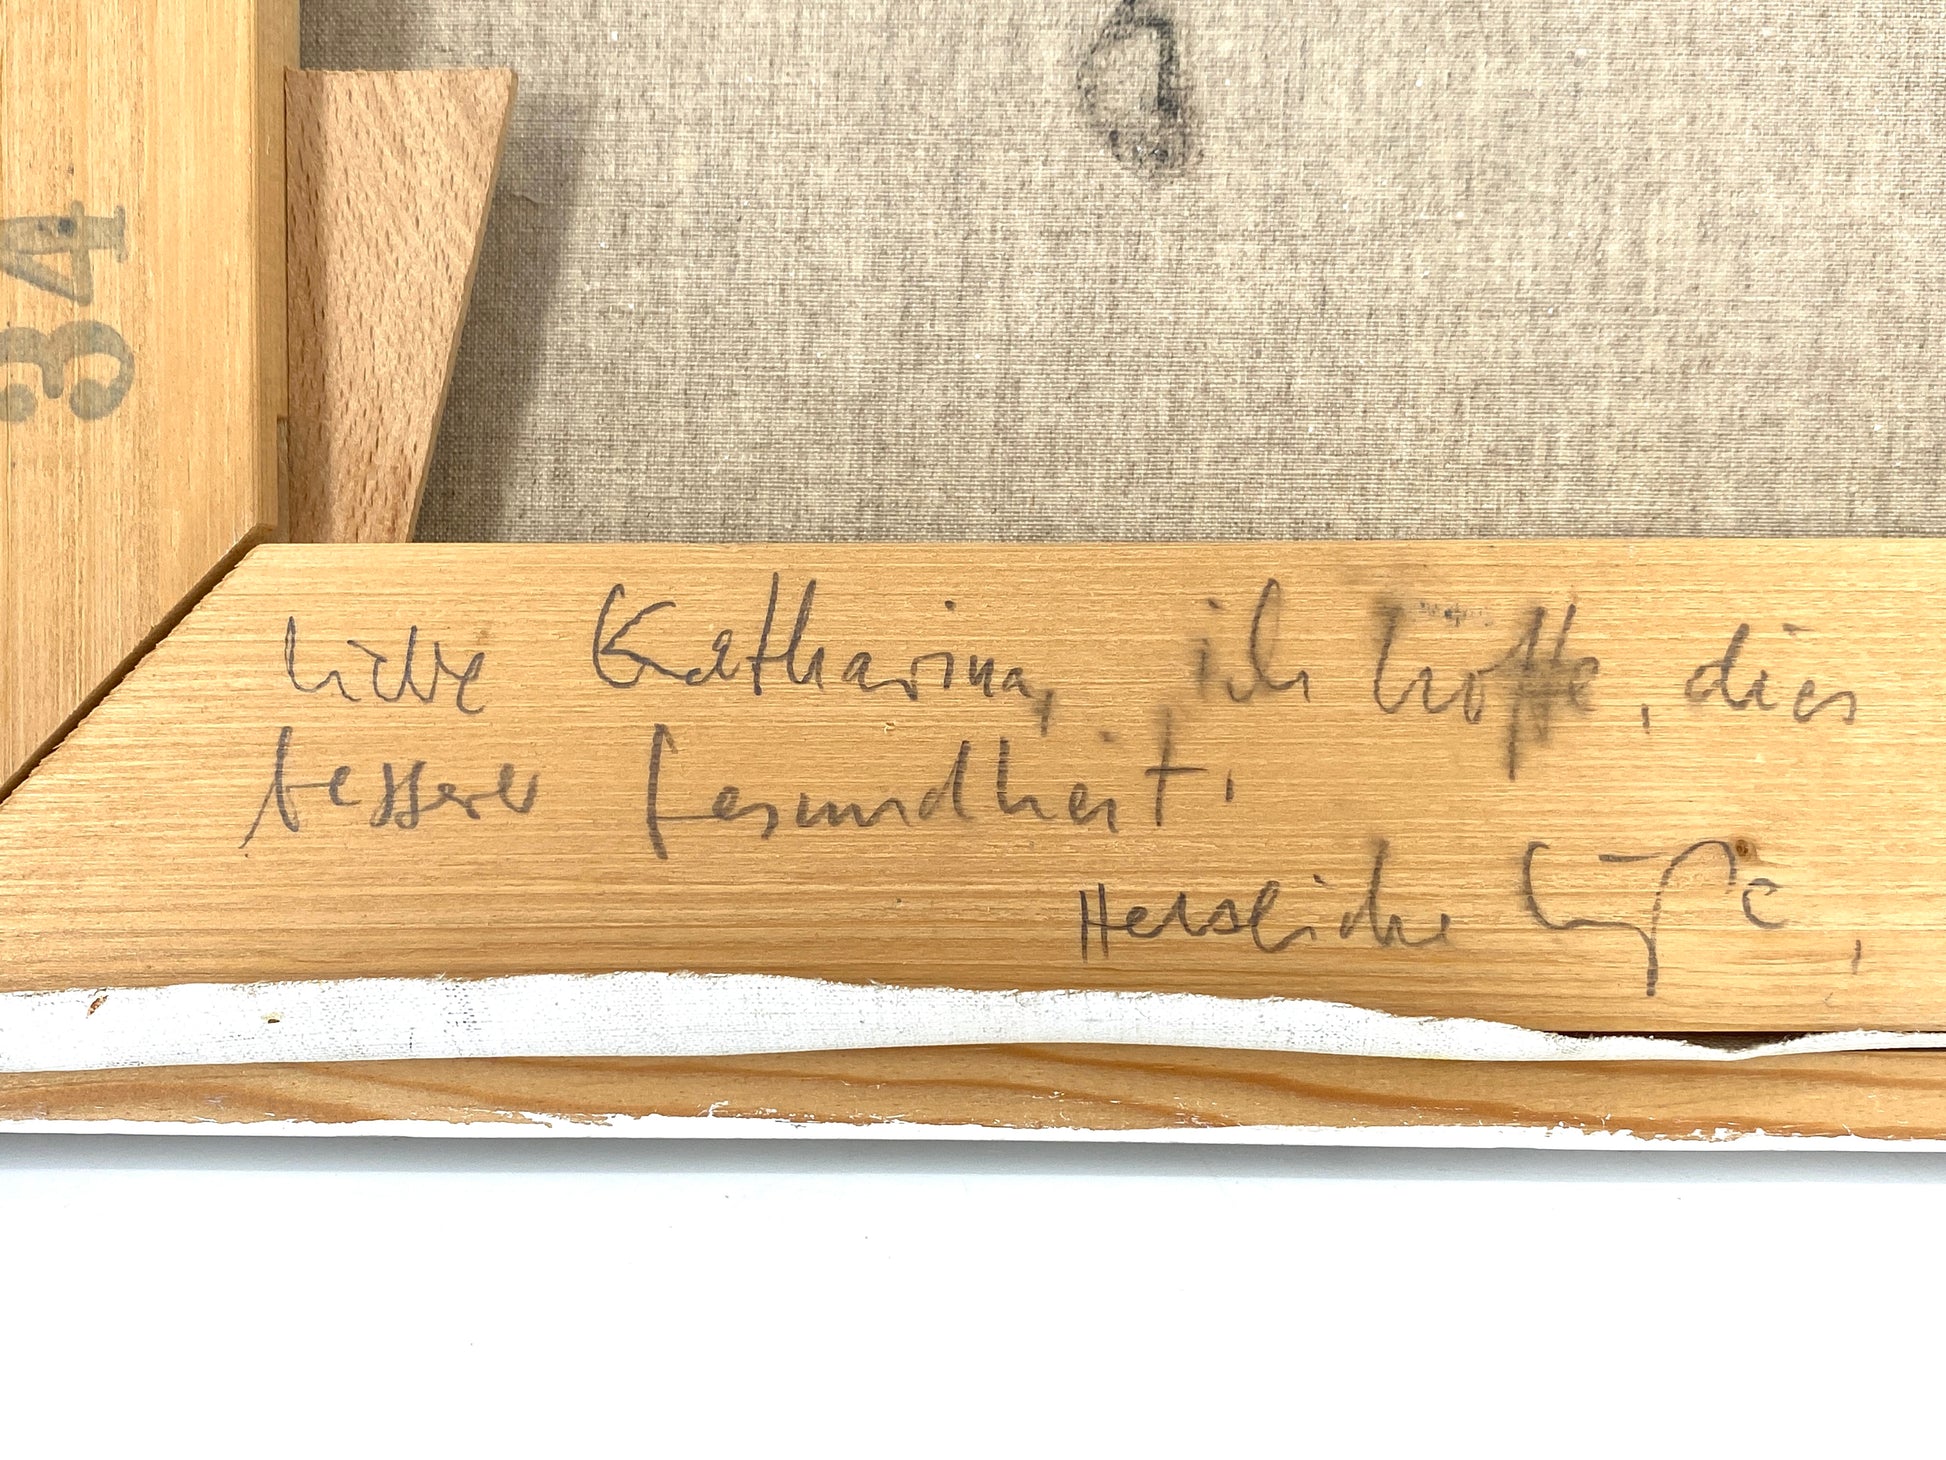 34
Liebe Katharina, ich hoffe, dies
besserer Gesundheit.
Herzliche Grüße,